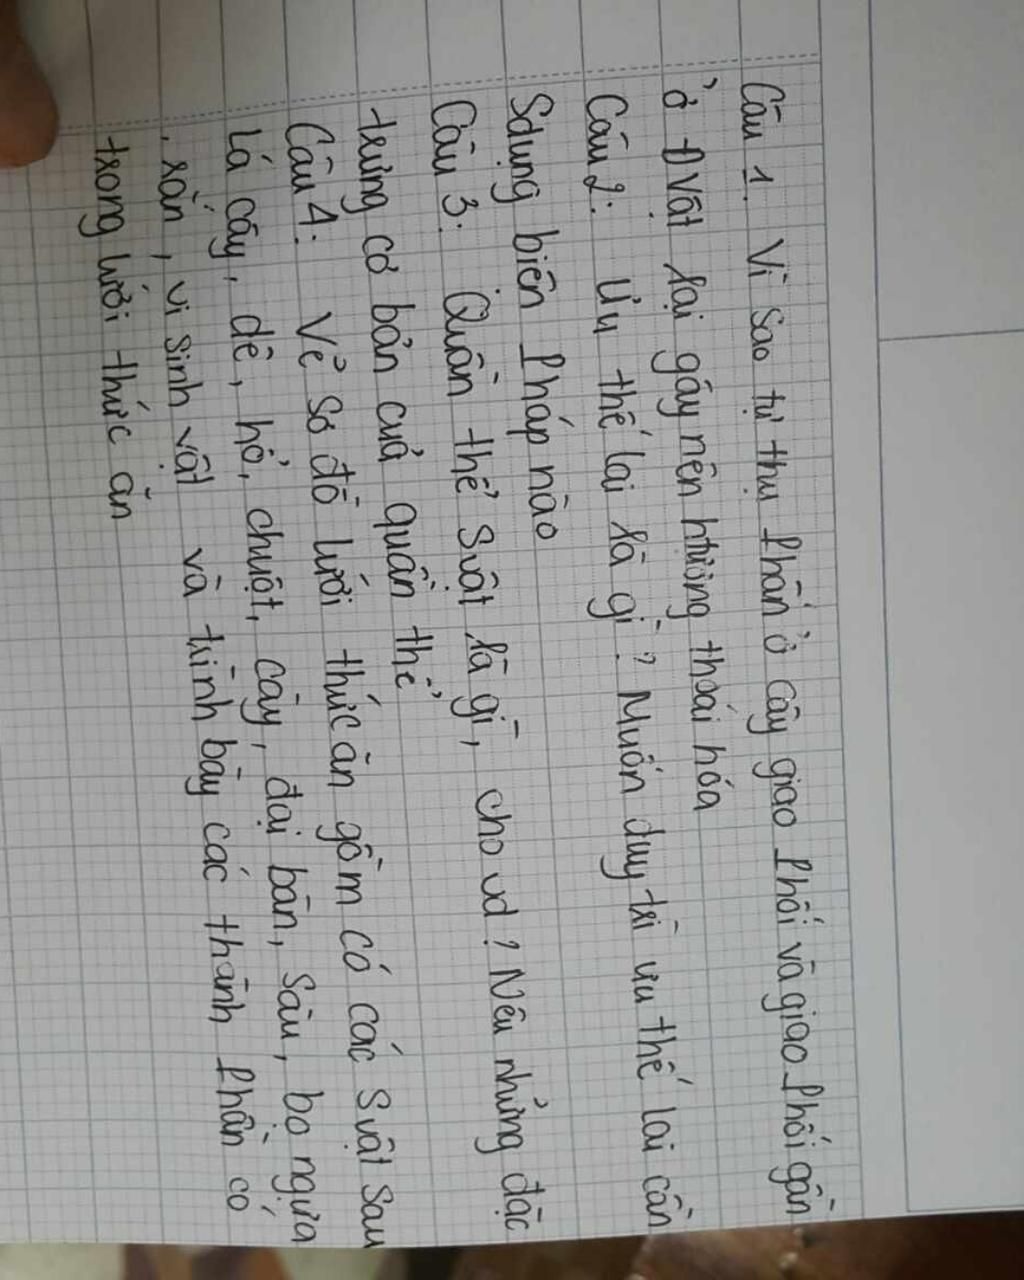 Câu 1. Vì sao tự thụ phấn ở cây giao phối và giao phối gần
ở Đvật lại gây nên htượng thoái hóa
Câu 2: Ưu thế lai là gì? Muốn duy trì ưu thế lai cần
Sdụng biện pháp nào
Câu 3: Quần thể Svật là gì, cho vd? Nêu những đặc
trưng cơ bản của quần thể
Câu 4: Vẽ sơ đồ lưới thức ăn gồm có các Svật sau
Lá cây, dê, hổ, chuột, cầy, đại bàn, sâu, bọ ngựa
, rắn, vi sinh vật và trình bày các thành phần có
trong lưới thức ăn